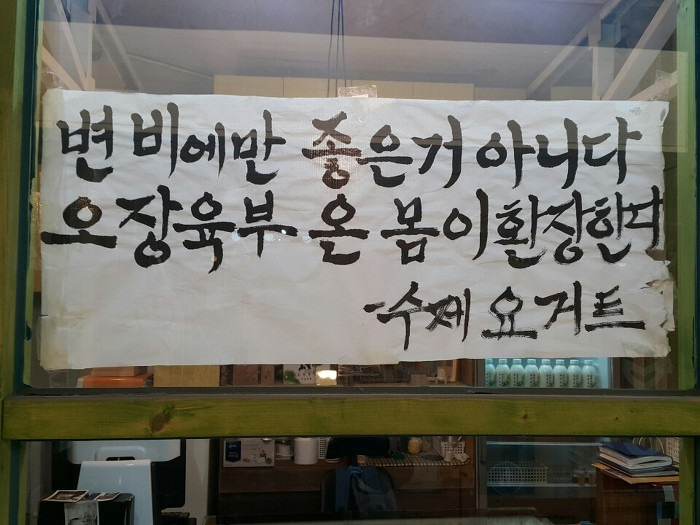 변비에만 좋은기 아니다
오장육부 온 몸이 환장한다
-수제 요거트